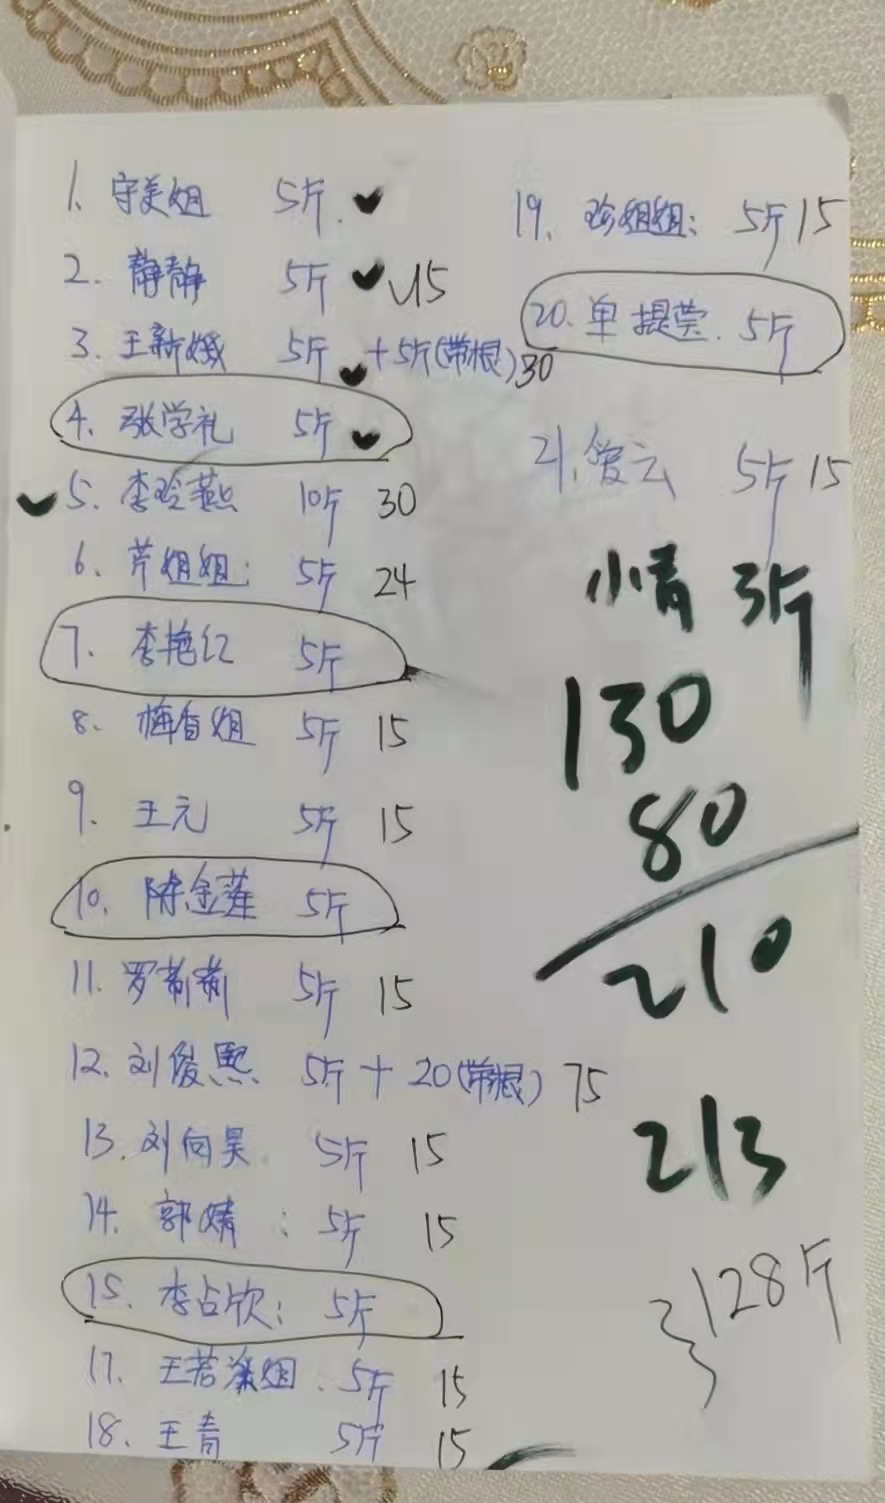 1. 守美姐 5斤.
2. 静静 5斤 15
3. 王新娥 5斤 +5斤(带根) 30
4. 张学礼 5斤
5. 李玲燕 10斤 30
6. 芹姐姐: 5斤 24
7. 李艳红 5斤
8. 梅香姐 5斤 15
9. 王元 5斤 15
10. 陈金莲 5斤
11. 罗莉莉 5斤 15
12. 刘俊熙 5斤 + 20(带根) 75
13. 刘向昊 5斤 15
14. 郭婧: 5斤 15
15. 李占欣: 5斤
17. 王若 姐. 5斤 15
18. 王青 5斤 15
19. 珍姐姐: 5斤 15
20. 单提莹. 5斤
21. 爱云 5斤 15
小青 3斤
130
80
210
213
128斤